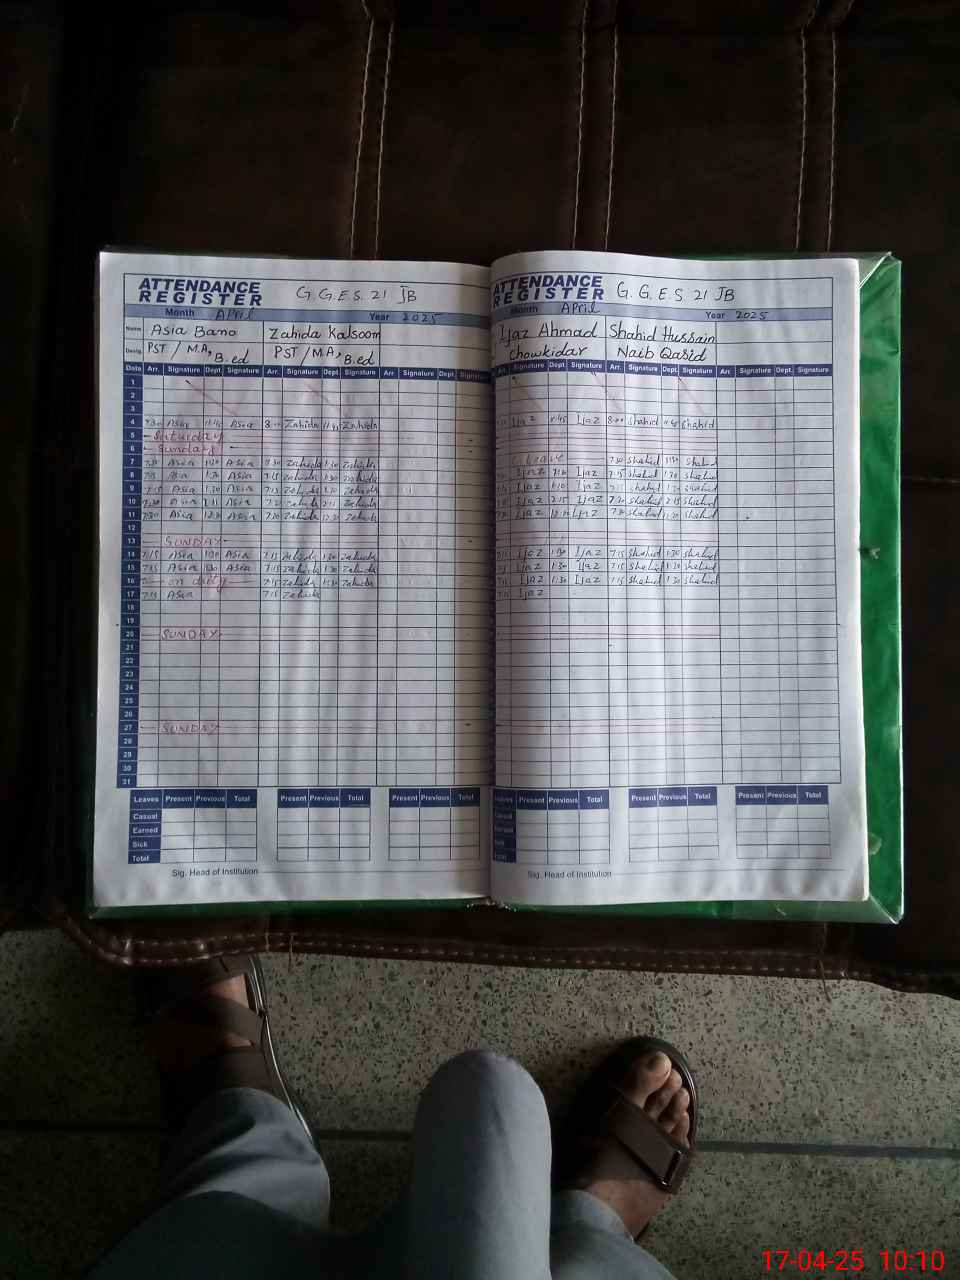 ATTENDANCE REGISTER G.G.E.S. 21 JB
Month April Year 2025
Name Asia Bano Zahida Kalsoom
Desig. PST / M.A, B.ed PST / M.A, B.ed
Date Arr. Signature Dept. Signature Arr. Signature Dept. Signature Arr. Signature Dept. Signature
1
2
3
4 Asia Asia Zahida Zahida
5 Saturday
6 Sunday
7 7:30 Asia 1:30 Asia 7:30 Zahida 1:30 Zahida
8 Asia 1:30 Asia 7:15 Zahida 1:30 Zahida
9 7:15 Asia 1:30 Asia 7:15 Zahida Zahida
10 7:30 Asia Asia Zahida 2:15 Zahida
11 7:30 Asia 12:30 Asia 7:30 Zahida 12:30 Zahida
12
13 SUNDAY
14 7:15 Asia 1:30 Asia 7:15 Zahida 1:30 Zahida
15 7:15 Asia 1:30 Asia 7:15 Zahida 1:30 Zahida
16 on duty 7:15 Zahida 1:30 Zahida
17 7:15 Asia 7:15 Zahida
18
19
20 SUNDAY
21
22
23
24
25
26
27 SUNDAY
28
29
30
31
Leaves Present Previous Total Present Previous Total Present Previous Total
Casual
Earned
Sick
Total
Sig. Head of Institution
ATTENDANCE REGISTER G.G.E.S. 21 JB
Month April Year 2025
Ijaz Ahmad Shahid Hussain
Chowkidar Naib Qasid
Arr. Signature Dept. Signature Arr. Signature Dept. Signature Arr. Signature Dept. Signature
Ijaz 11:45 Ijaz 8:00 Shahid 11:45 Shahid
7:30 Shahid 1:30 Shahid
Ijaz 1:30 Ijaz 7:15 Shahid 1:30 Shahid
Ijaz Ijaz 7:15 Shahid Shahid
Ijaz 2:15 Ijaz Shahid 2:15 Shahid
Ijaz 12:30 Ijaz 7:30 Shahid 12:30 Shahid
Ijaz 1:30 Ijaz 7:15 Shahid 1:30 Shahid
Ijaz 1:30 Ijaz 7:15 Shahid 1:30 Shahid
Ijaz 1:30 Ijaz 7:15 Shahid 1:30 Shahid
Ijaz
Leaves Present Previous Total Present Previous Total Present Previous Total
Casual
Earned
Sick
Total
Sig. Head of Institution
17-04-25 10:10